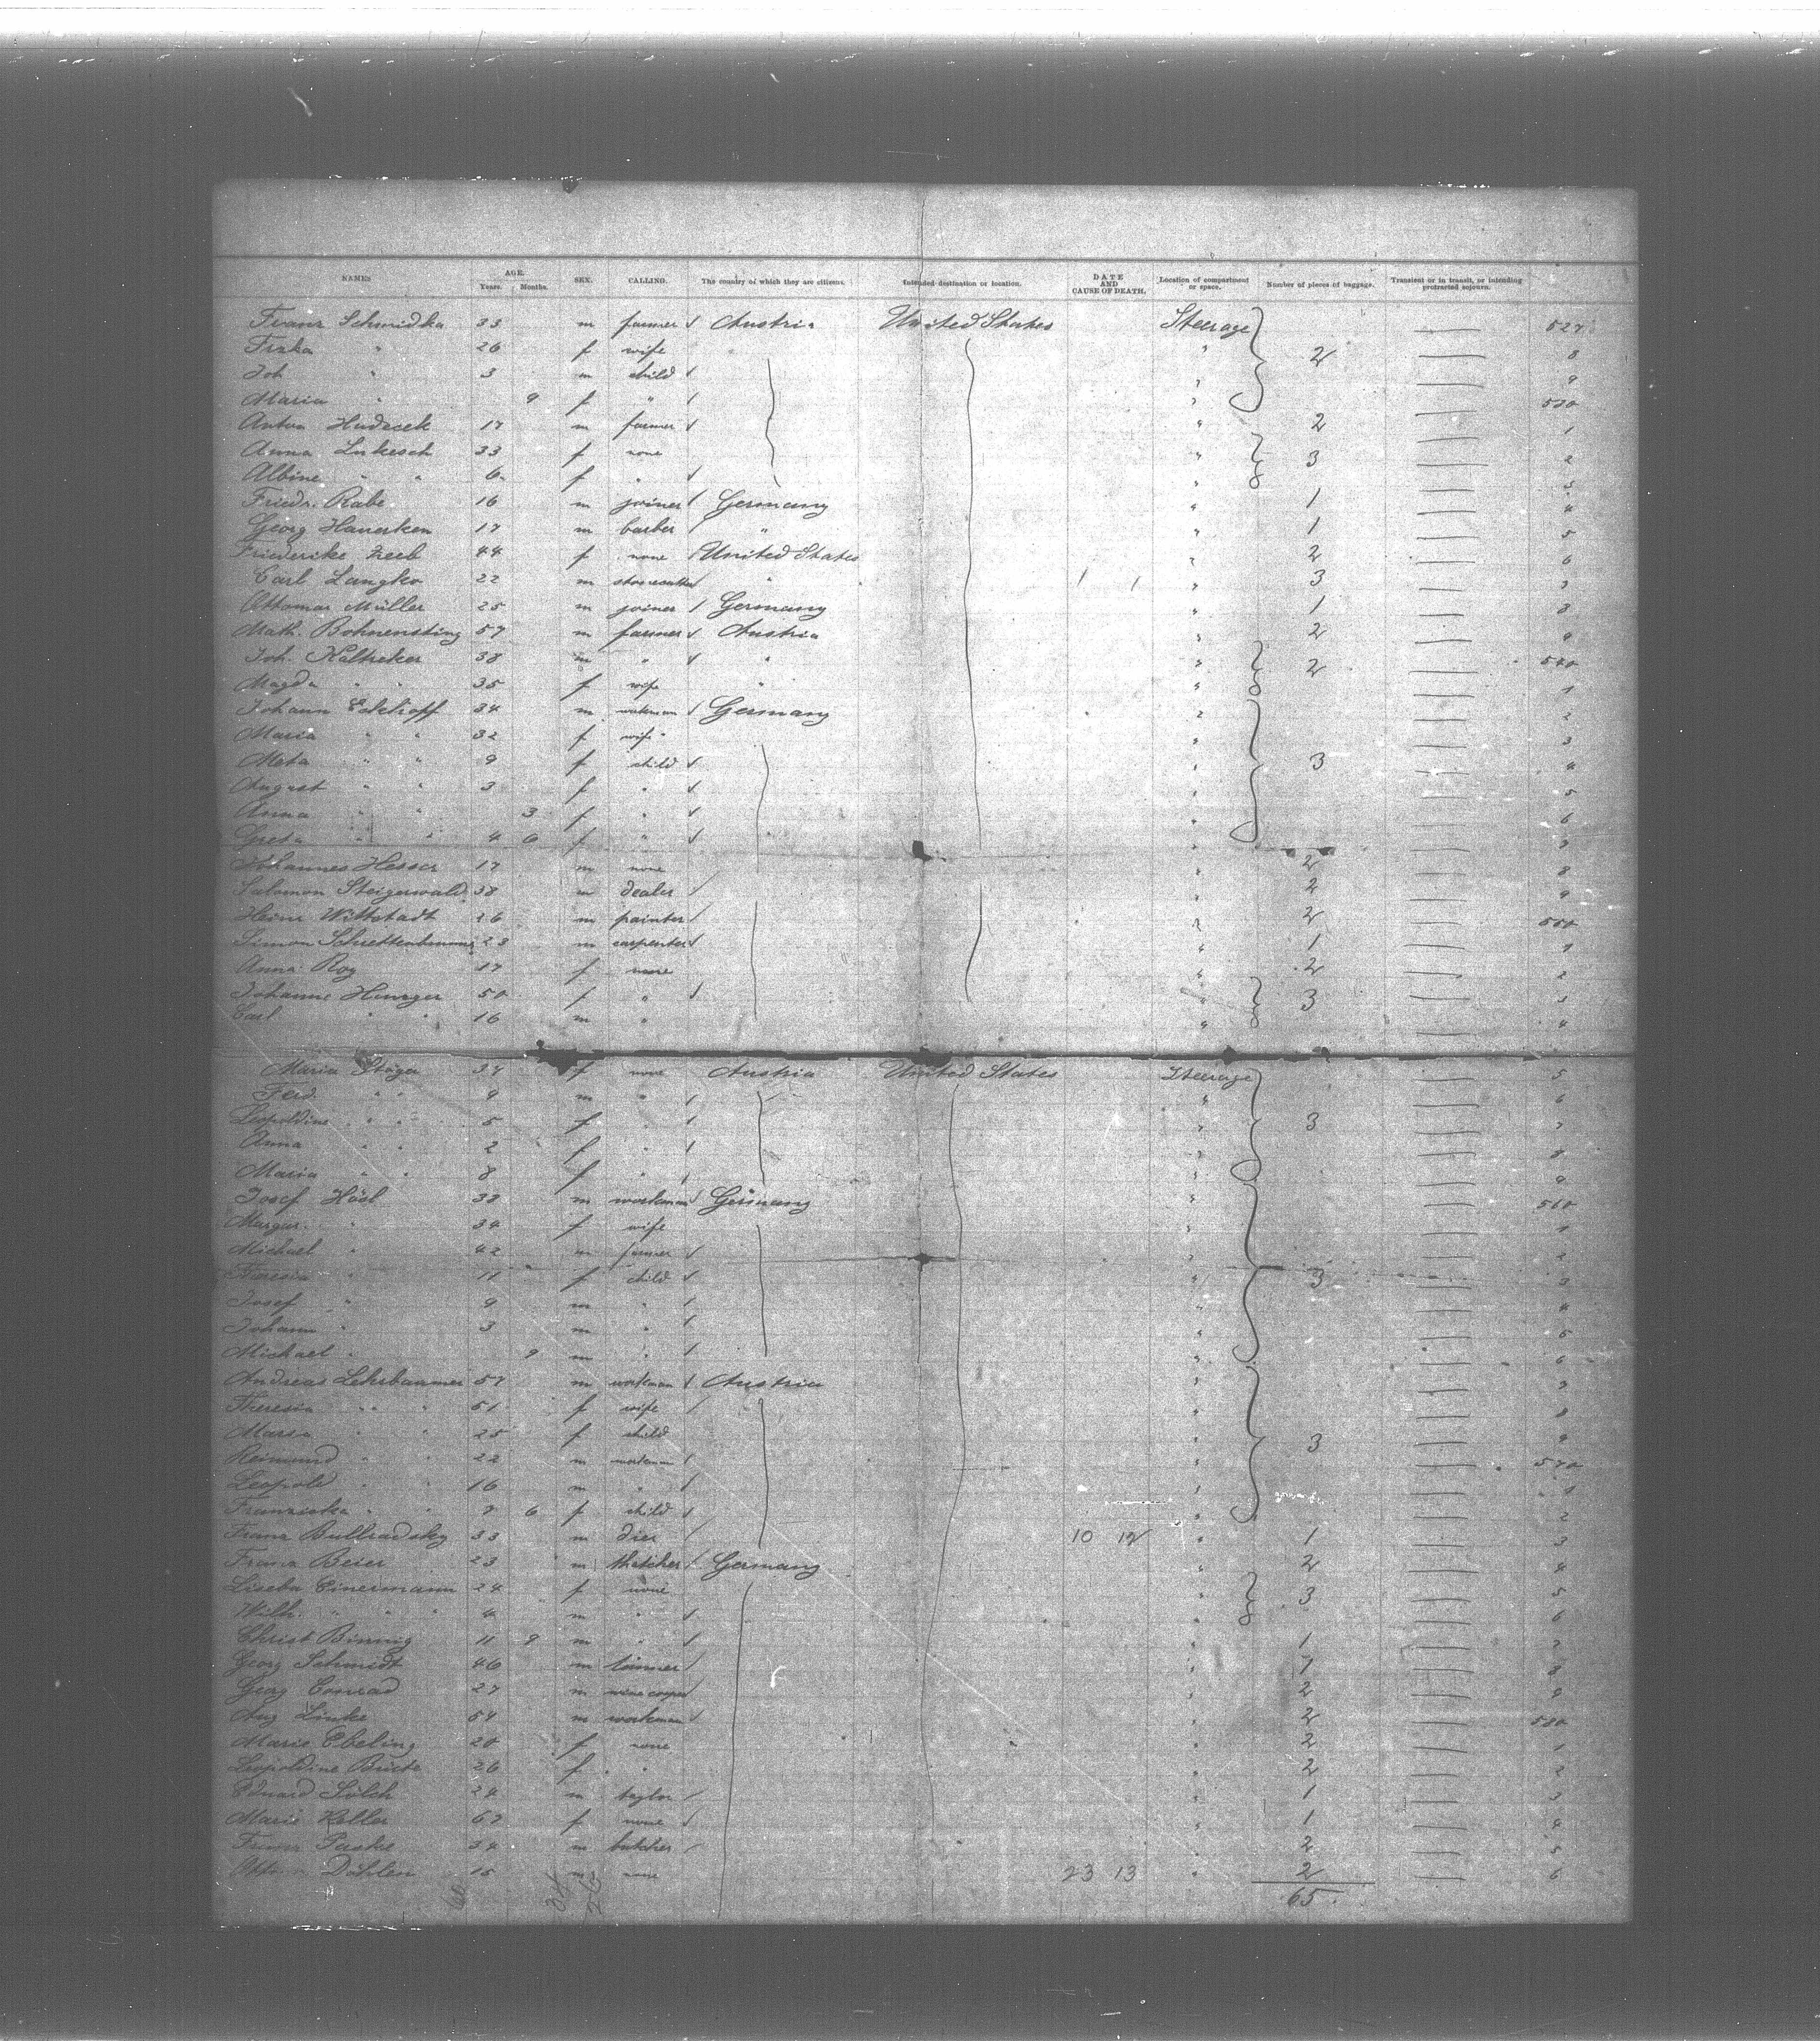 NAMES AGE. Years. Months. SEX. CALLING. The country of which they are citizens. Intended destination or location. DATE AND CAUSE OF DEATH. Location of compartment or space. Number of pieces of baggage. Transient or in transit, or intending protracted sojourn.
Franz Schmidka 33 m farmer Austria United States Steerage 527
Frzka " 26 f wife " 2 8
Joh " 3 m child " 9
Maria " 9 f " " 530
Anton Hudecek 17 m farmer " 2 1
Anna Lukesch 33 f none " 3 2
Albine " " 6 f " " 3
Friedr. Rabe 16 m joiner Germany " 1 4
Georg Hanerken 17 m barber " " 1 5
Friederike Zeeb 44 f none United States " 2 6
Carl Langko 22 m stonecutter " " 3 7
Ottomar Müller 25 m joiner Germany " 1 8
Math. Bohnensting 57 m farmer Austria " 2 9
Joh. Kaltseker 38 m " " " 2 540
Magda " " 35 f wife " " 1
Johann Eckhoff 34 m workman Germany " 2
Maria " " 32 f wife " 3
Meta " " 9 f child " 3 4
August " " 3 f " " 5
Anna " " 3 f " " 6
Greta " " 4 6 f " " 7
Johannes Hesser 17 m none " 2 8
Salomon Steigerwald 38 m dealer " 2 9
Heinr Wittstadt 26 m painter " 2 550
Simon 23 m carpenter " 1 1
Anna Roy 17 f none " 2 2
Johanne 50 f " " 3 3
Carl " " 16 m " " 4
Maria Stöger 37 f none Austria United States Steerage 5
Ferd. " " 9 m " " 6
Leopoldine " " 5 f " " 3 7
Anna " " 2 f " " 8
Maria " " 8 f " " 9
Josef Hösl 33 m workman Germany " 560
Margar. " 34 f wife " 1
Michael " 42 m farmer " 2
Theresia " 11 f child " 3 3
Josef " 9 m " " 4
Johann " 3 m " " 5
Michael " 9 m " " 6
Andreas Lehrbaumer 57 m workman Austria " 7
Theresia " " 51 f wife " 8
Maria " " 25 f child " 3 9
Reimund " " 22 m workman " 570
Leopold " " 16 m " " 1
Franziska " " 7 6 f child " 2
Franz Bullradsky 33 m dier 10 12 " 1 3
Franz Beier 23 m thatcher Germany " 2 4
Liseba Einermann 24 f none " 3 5
Wilh. " " " 4 m " " 6
Christ Binnig 11 9 m " " 1 7
Georg Schmidt 46 m " 1 8
Georg Conrad 27 m wine cooper " 2 9
Aug Linke 54 m workman " 2 580
Marie Ebeling 20 f none " 2 1
Leopoldine 26 f " " 2 2
Eduard Sölch 24 m taylor " 1 3
Marie Keller 67 f none " 1 4
Franz 34 m butcher " 2 5
Döhlen 15 m none 23 13 " 2 6
65.